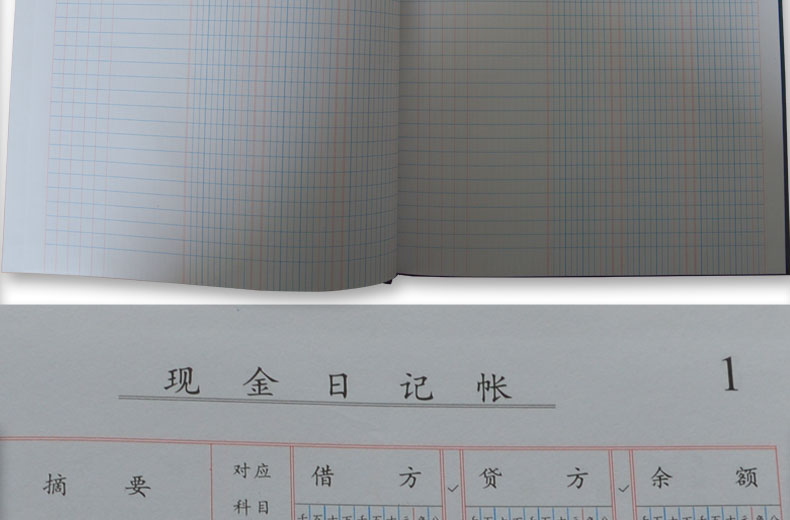 现金日记帐
1
摘要 对应科目 借方 ✓ 贷方 ✓ 余额